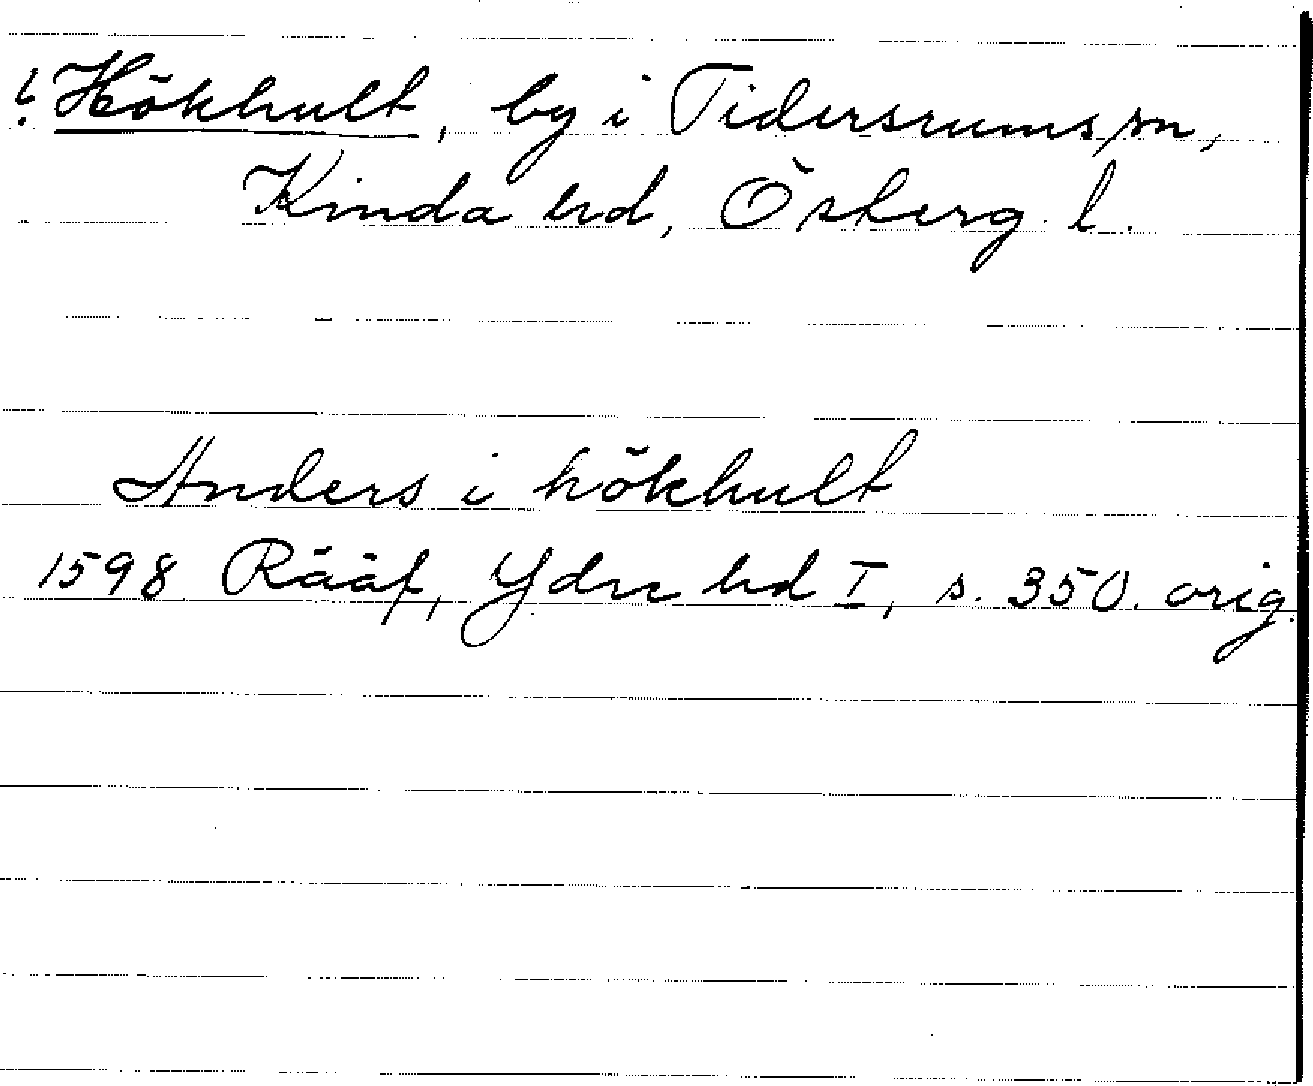 ? Hökhult, by i Tidersrums sn,
Kinda hd, Österg. l.
Anders i hökhult
1598 Rääf, Ydre hd I, s. 350. orig.